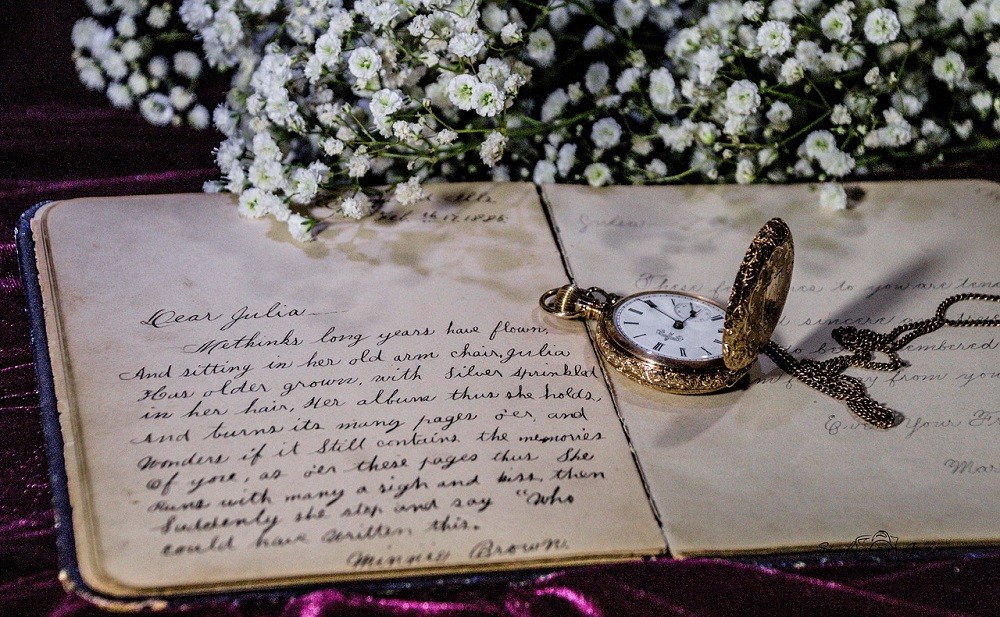 Feb. 17, 1886
Dear Julia
Methinks long years have flown,
And sitting in her old arm chair, Julia
Has older grown, with Silver sprinkled
in her hair, Her album thus she holds,
And turns its many pages o'er, and
Wonders if it Still contains the memories
Of yore, as o'er these pages thus She
Runs with many a sigh and kiss, then
Suddenly she stop and say "Who
could have written this.
Minnie Brown.
Julia
These f
to you are ten
sincer
to be
embered
y from you
Your Fr
Mar